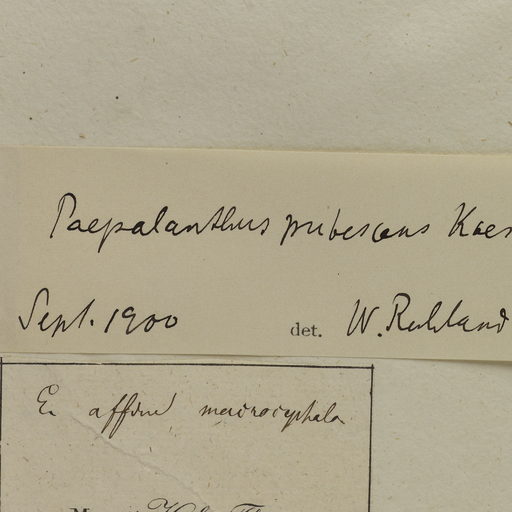 Paepalanthus pubescens Koer
Sept. 1900 det. W. Ruhland
E. affine macrocephala